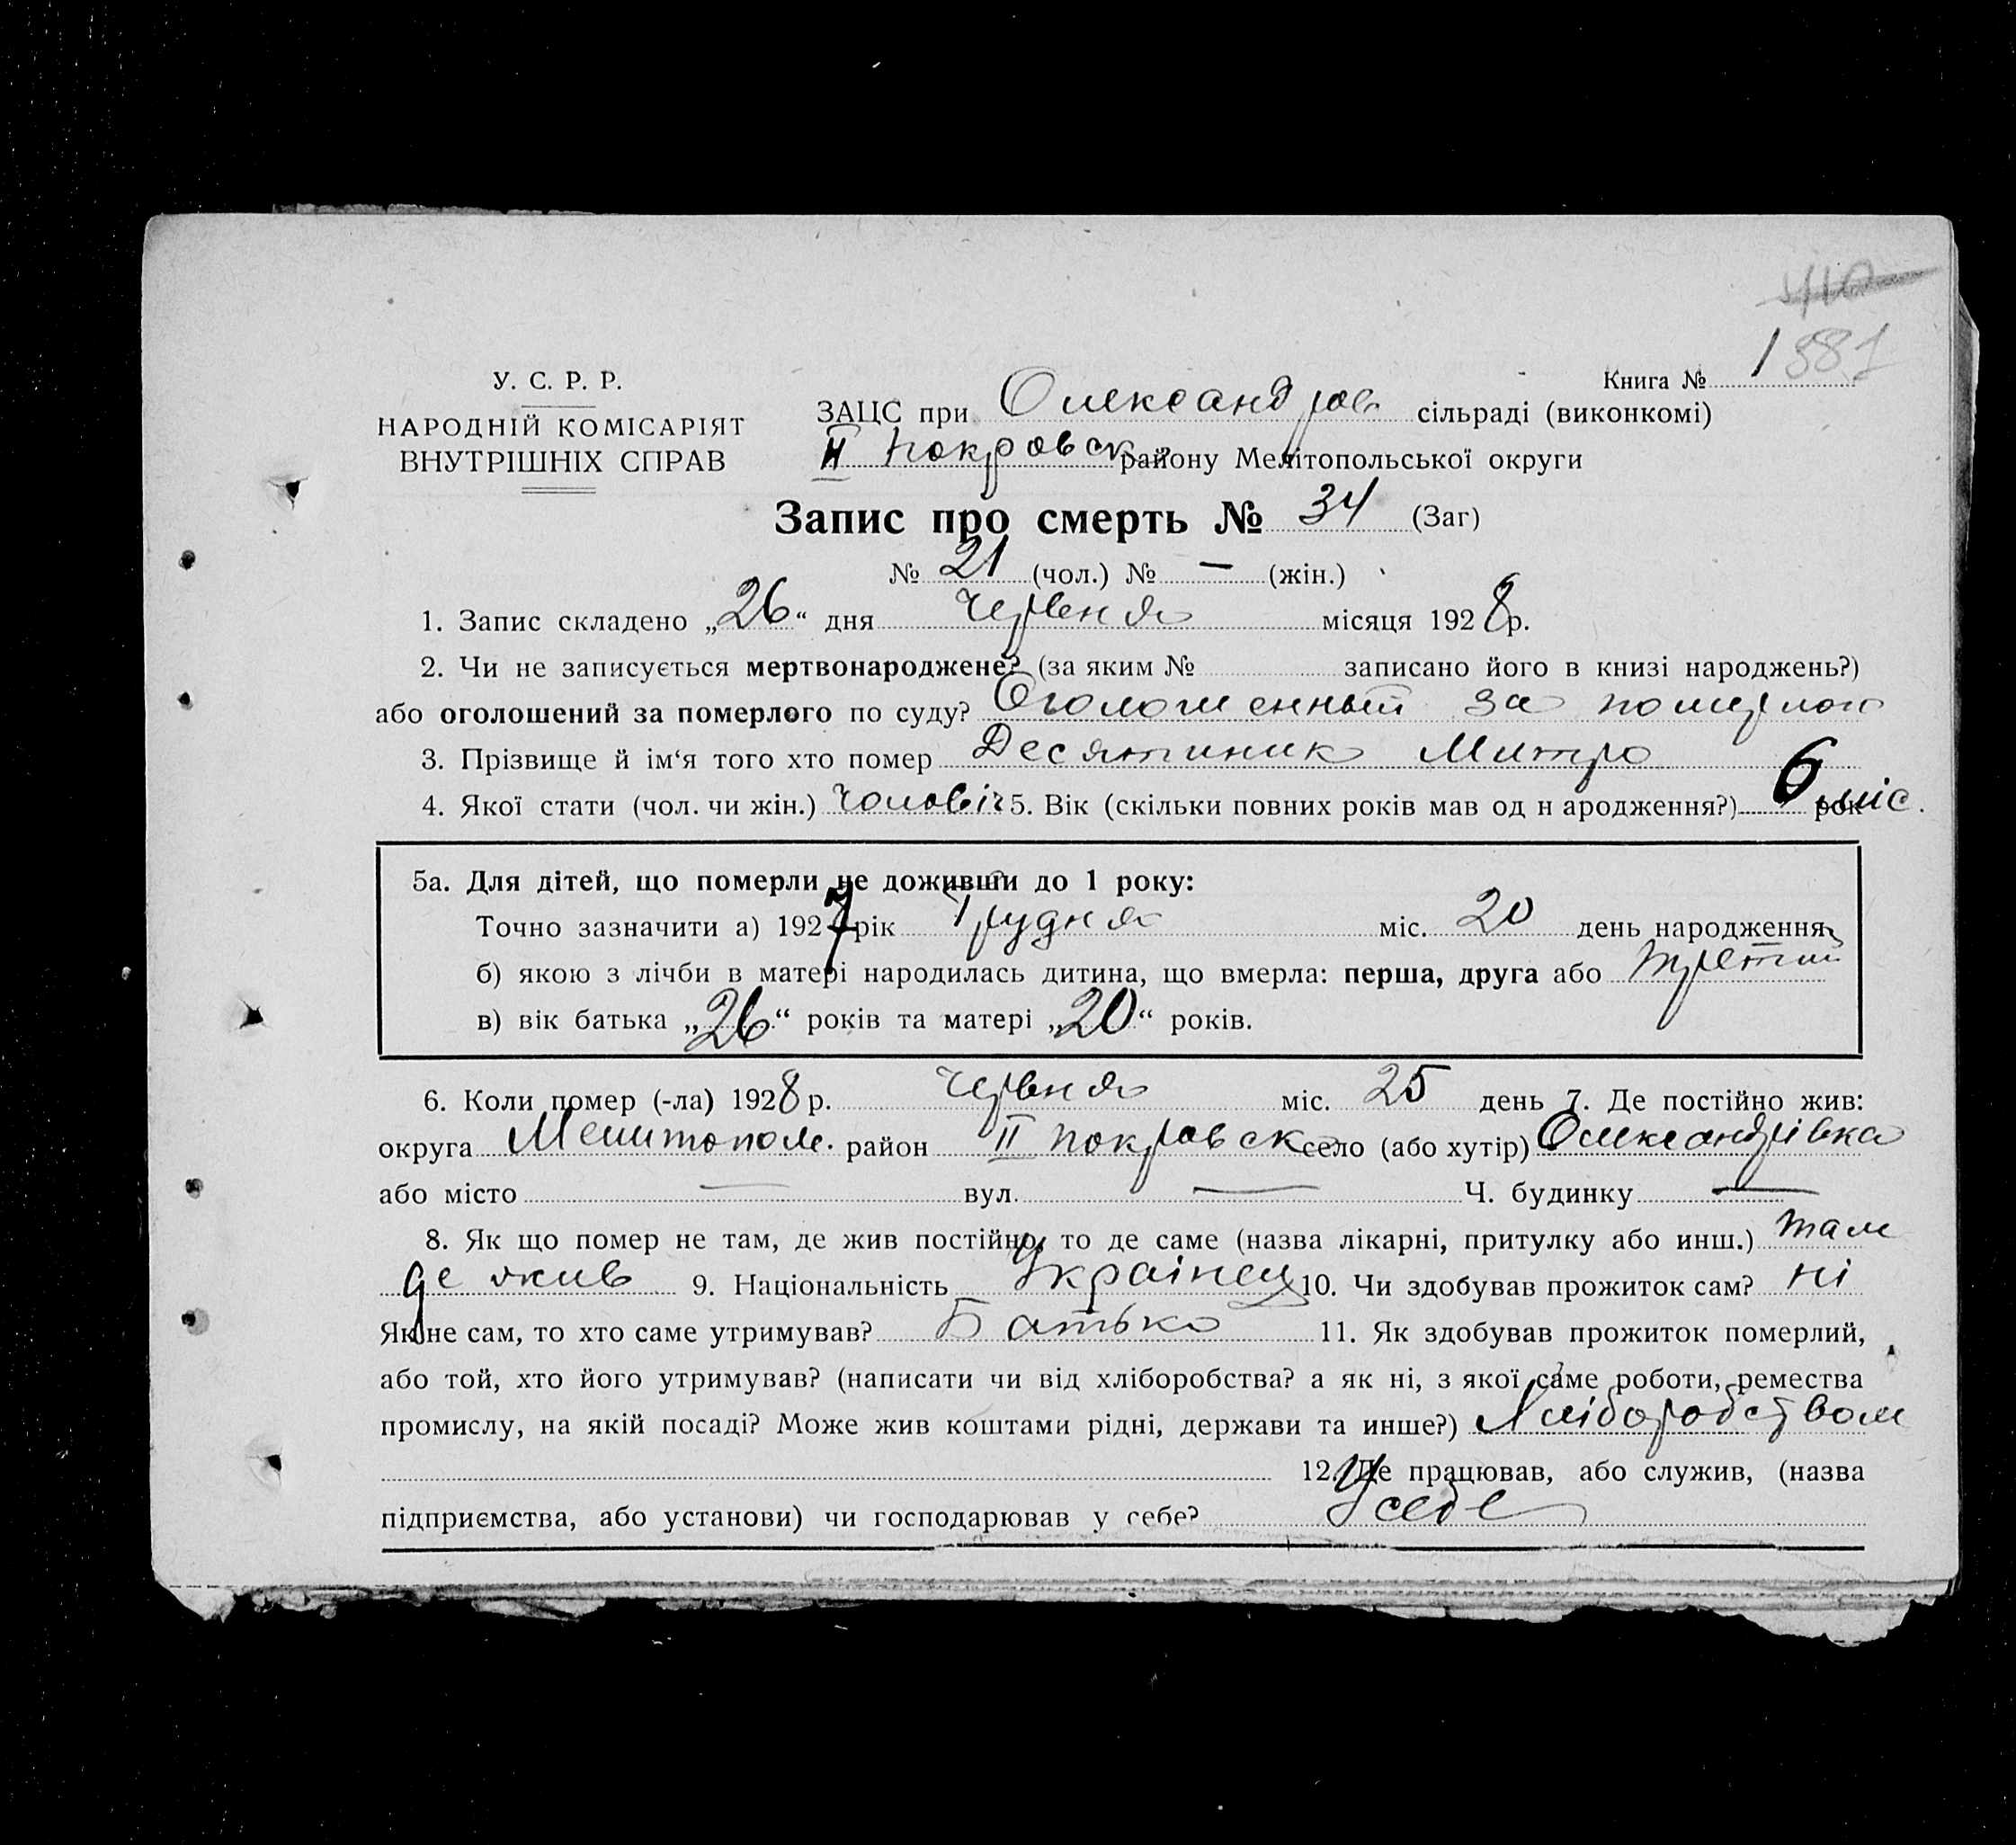 У. С. Р. Р.
НАРОДНІЙ КОМІСАРІЯТ
ВНУТРІШНІХ СПРАВ
Книга № 1 381
ЗАЦС при Олександров сільраді (виконкомі)
II Покровськ району Мелітопольської округи
Запис про смерть № 34 (Заг)
№ 21 (чол.) № — (жін.)
1. Запис складено „26“ дня Червня місяця 1928 р.
2. Чи не записується мертвонароджене? (за яким № записано його в книзі народжень?)
або оголошений за померлого по суду? Оголошенный за померлого
3. Прізвище й ім‘я того хто помер Десятиник Митро
4. Якої стати (чол. чи жін.) чоловіч 5. Вік (скільки повних років мав од н ародження?) 6 міс. рок
5а. Для дітей, що померли не доживши до 1 року:
Точно зазначити а) 1927 рік Грудня міс. 20 день народження
б) якою з лічби в матері народилась дитина, що вмерла: перша, друга або третий
в) вік батька „26“ років та матері „20“ років.
6. Коли помер (-ла) 1928 р. Червня міс. 25 день 7. Де постійно жив:
округа Мелитопол. район II Покровск село (або хутір) Олександрівка
або місто — вул. — Ч. будинку —
8. Як що помер не там, де жив постійно, то де саме (назва лікарні, притулку або инш.) там
де жив 9. Національність Українец 10. Чи здобував прожиток сам? ні
Як не сам, то хто саме утримував? Батько 11. Як здобував прожиток померлий,
або той, хто його утримував? (написати чи від хліборобства? а як ні, з якої саме роботи, ремества
промислу, на якій посаді? Може жив коштами рідні, держави та инше?) Хліборобством
12. Де працював, або служив, (назва
підприємства, або установи) чи господарював у себе? У себе